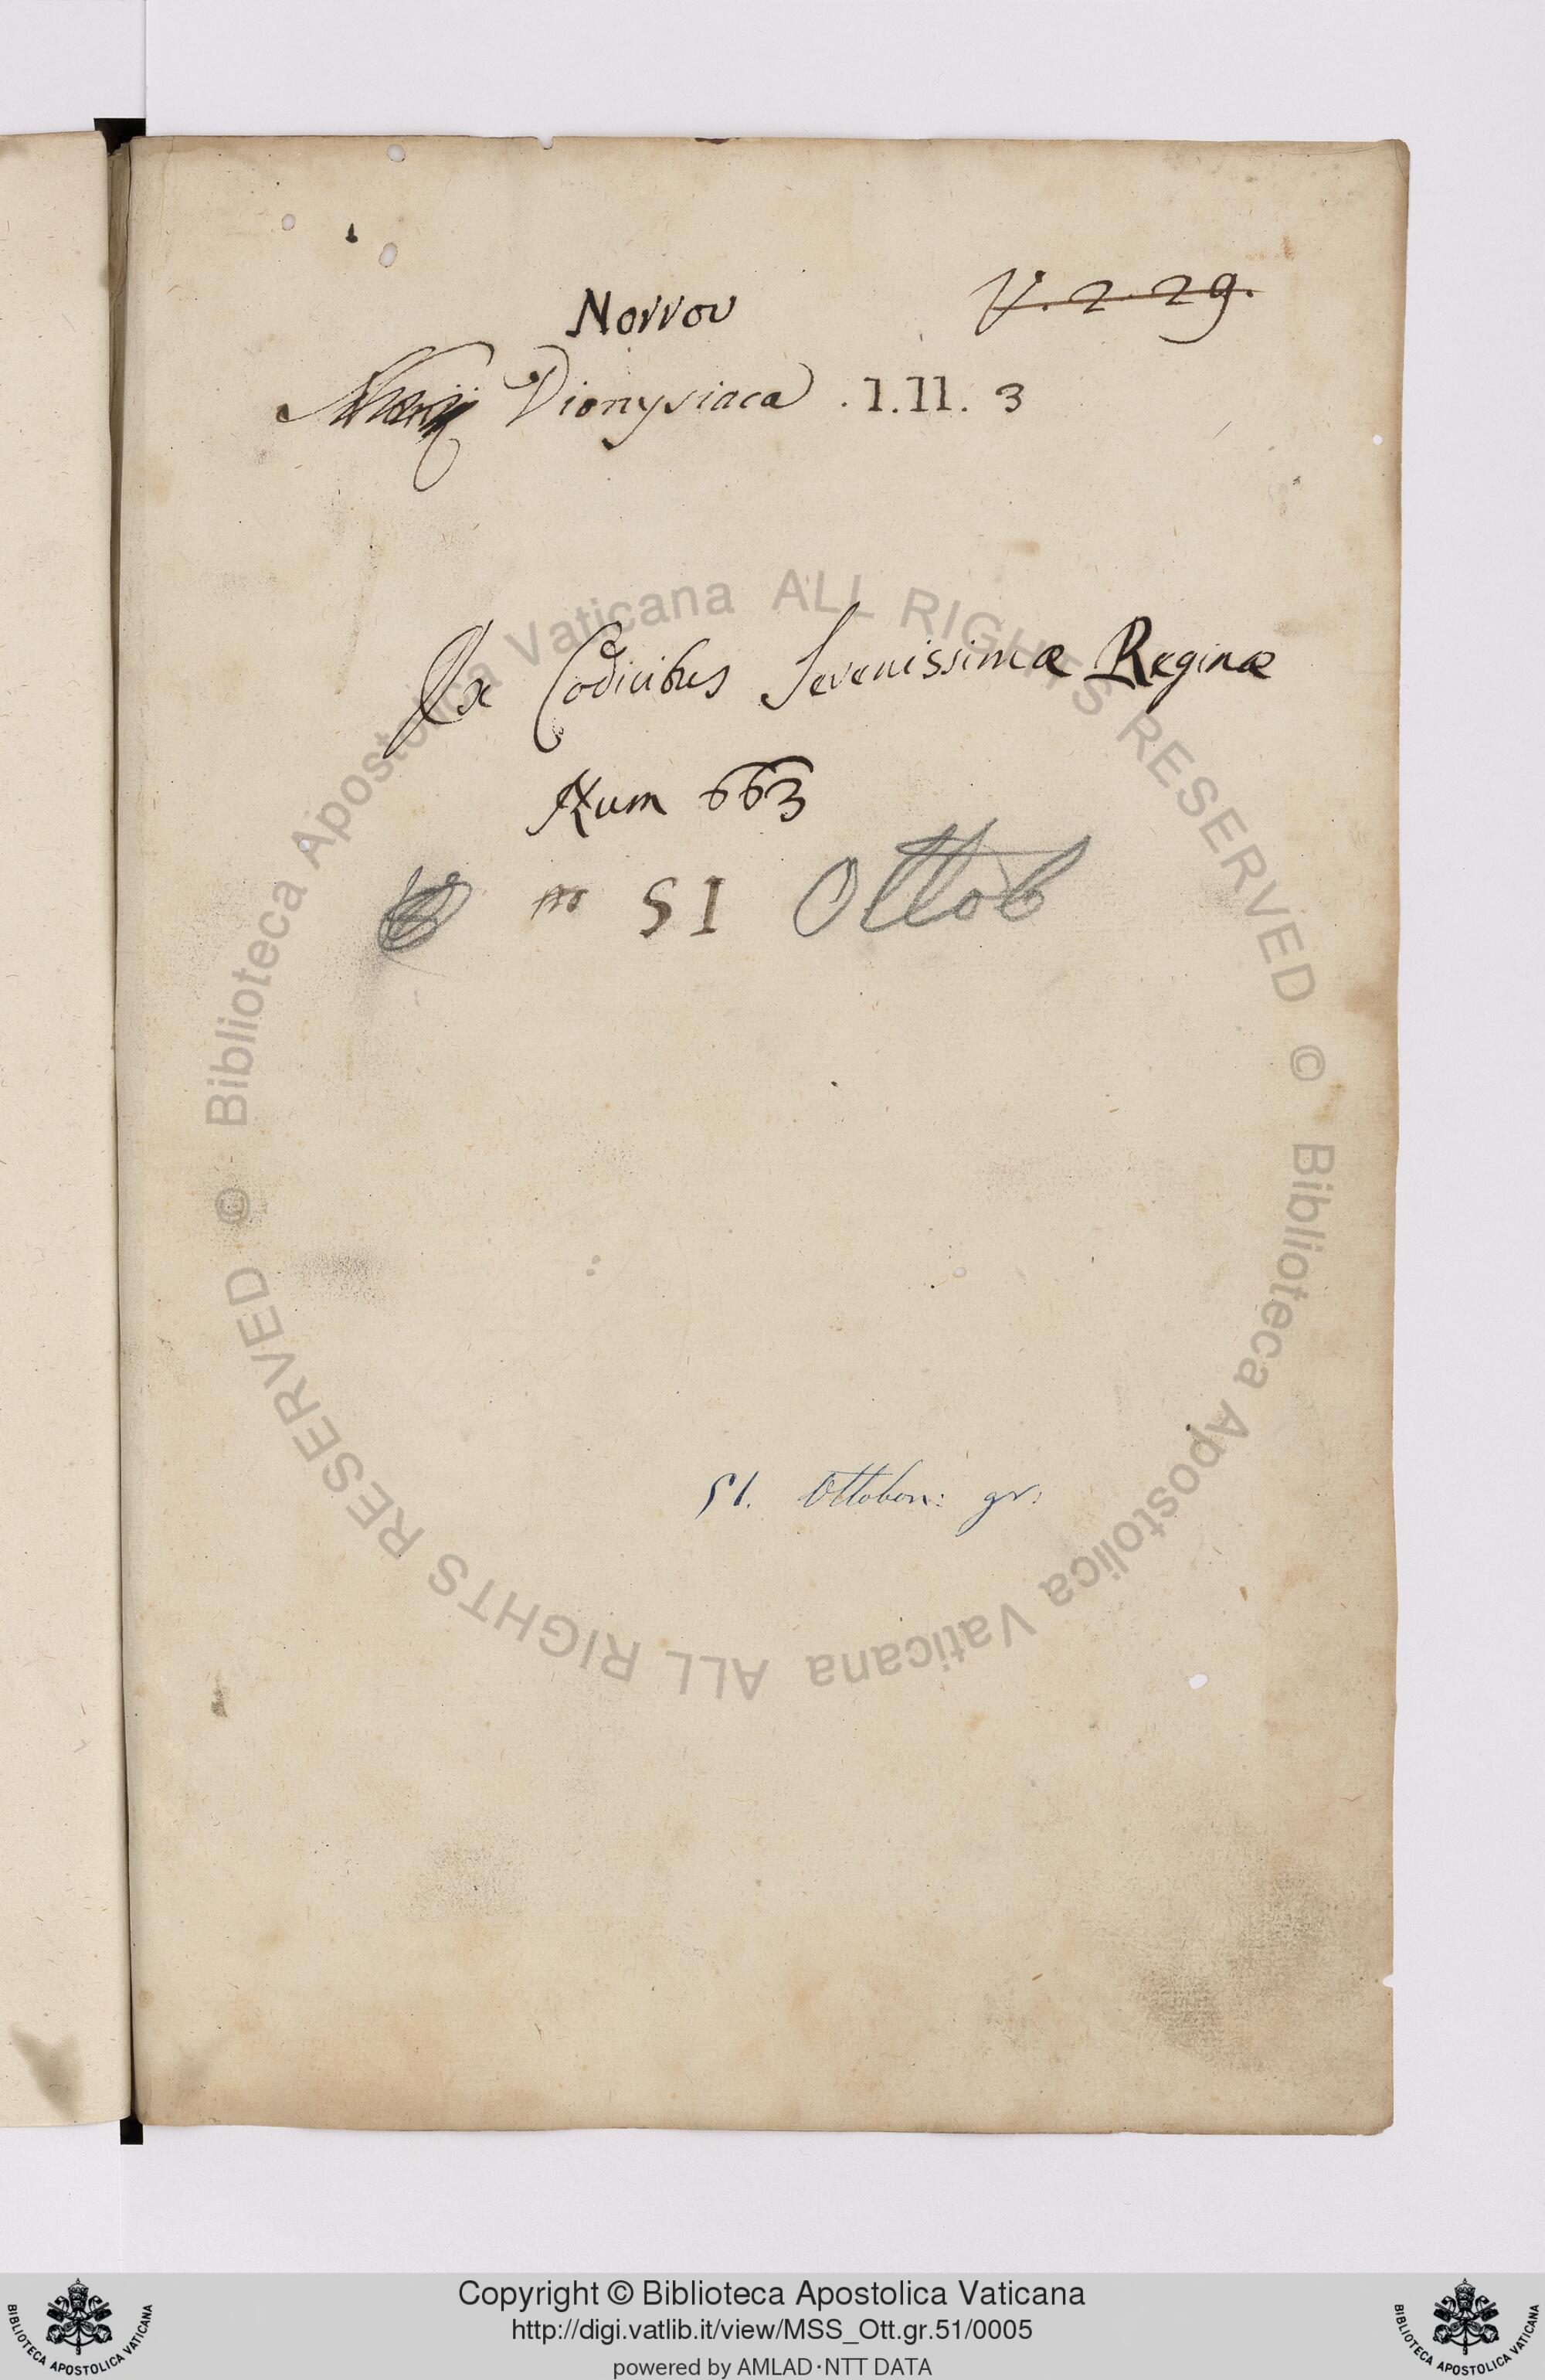 V. 2. 29.
Νοννου
Dionysiaca . I. II. 3
Ex Codicibus Serenissimæ Reginæ
Num 663
51 Ottob
51. Ottobon: gr:
© Biblioteca Apostolica Vaticana ALL RIGHTS RESERVED
© Biblioteca Apostolica Vaticana ALL RIGHTS RESERVED
Copyright © Biblioteca Apostolica Vaticana
http://digi.vatlib.it/view/MSS_Ott.gr.51/0005
powered by AMLAD·NTT DATA
BIBLIOTECA APOSTOLICA VATICANA
BIBLIOTECA APOSTOLICA VATICANA